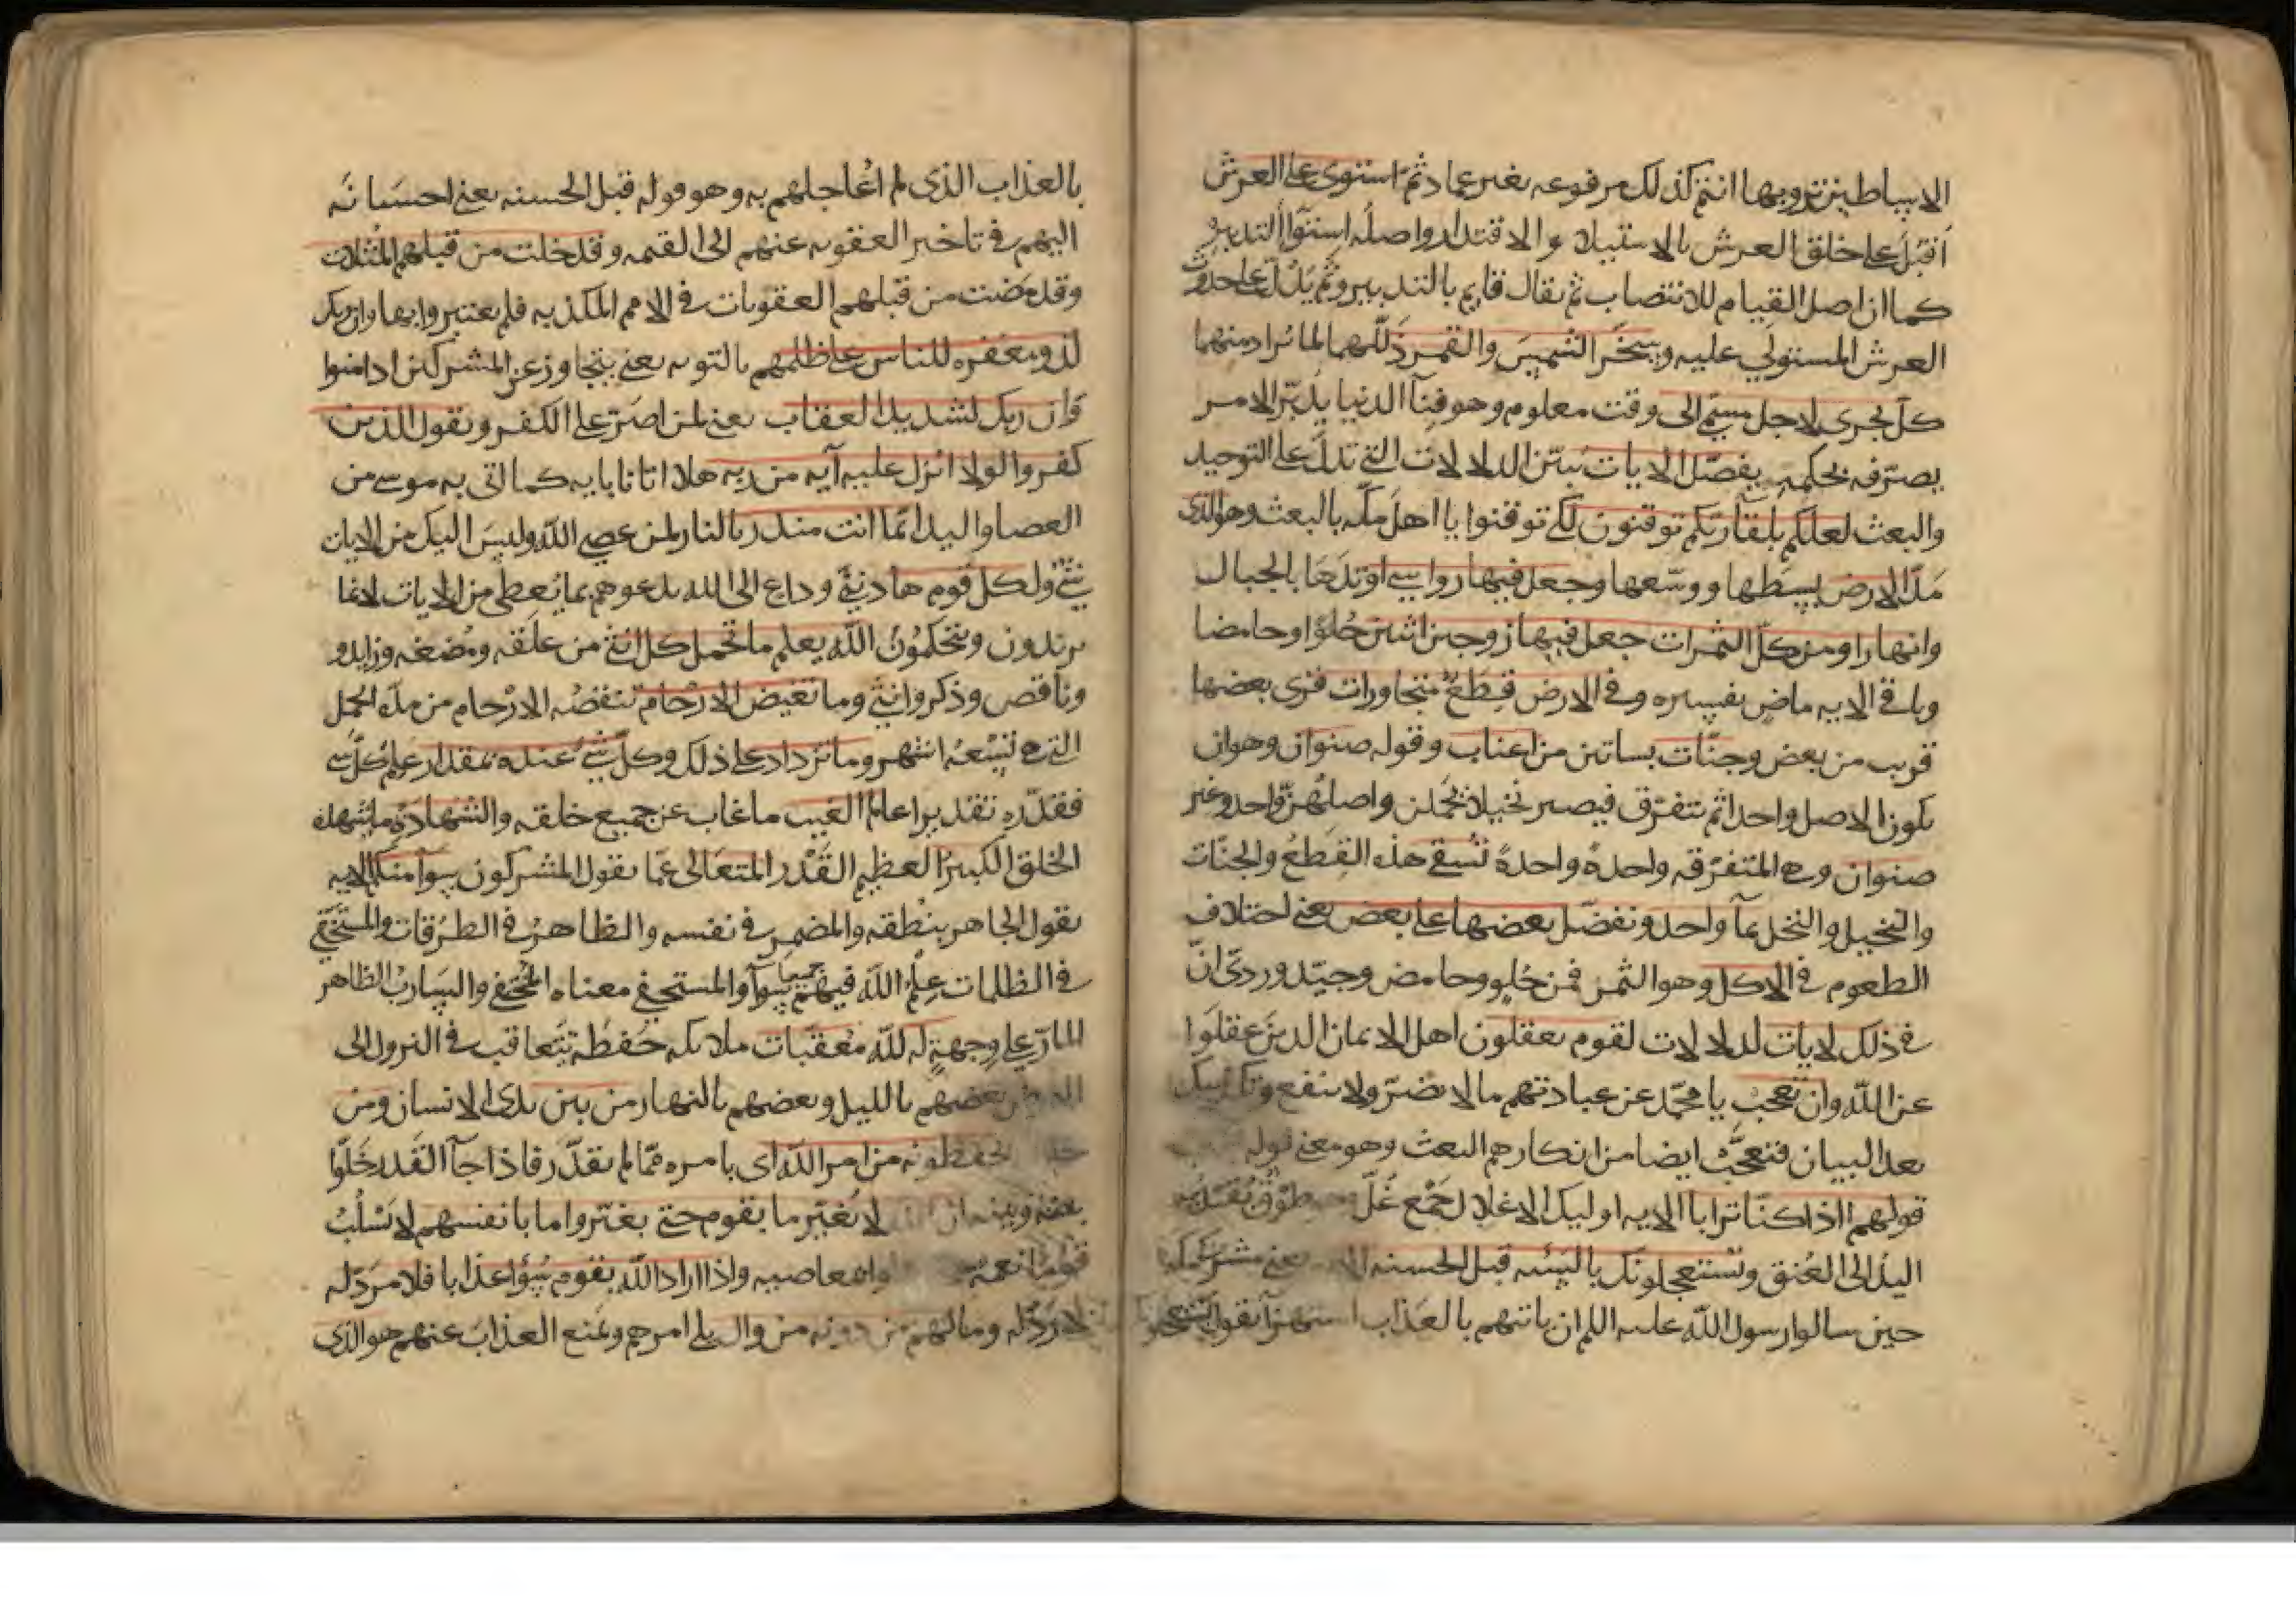 الاساطين ترونها انتم كذلك مرفوعه بغير عماد ثم استوى على العرش
اقبل على خلق العرش بالاستيلا والاقتدار واصله استوا التدبير
كما ان اصل القيام للانتصاب ثم يقال قايم بالتدبير وثم يدل على حدوث
العرش المستولي عليه وسخر الشمس والقمر ذللهما لما يراد منهما
كل يجرى لاجل مسمى الى وقت معلوم وهو فنآ الدنيا يدبّر الامر
يصرّفه بحكمته يفصّل الايات يبيّن الدلالات التي تدلّ على التوحيد
والبعث لعلكم بلقآ ربكم توقنون لكي توقنوا يا اهل مكه بالبعث وهو الذى
مدّ الارض بسطها ووسّعها وجعل فيها رواسي اوتدها بالجبال
وانهارا ومن كلّ الثمرات جعل فيها زوجين اثنين حُلوًا وحامضا
وباقي الايه ماض تفسيره وفي الارض قطعٌ متجاورات قرى بعضها
قريب من بعض وجنّات بساتين من اعناب وقوله صنوان وهو ان
يكون الاصل واحدا ثم يتفرّق فيصير نخيلا يحملن واصلهنّ واحد وغير
صنوان وهي المتفرّقه واحدةً واحدةً تُسقى هذه القِطَعُ والجنّات
والنخيل والنخل بمآ واحد ونفضّل بعضها على بعض يعني اختلاف
الطعوم في الاكل وهو الثمر فمن حُلو وحامض وجيّد وردىّ انّ
في ذلك لايات لدلالات لقوم يعقلون اهل الايمان الذين عقلوا
عن الله وان تعجب يا محمّد عن عبادتهم ما لا يضرّ ولا ينفع وتكذيبك
بعد البيان فتعجّبْ ايضا من انكارهم البعث وهو معنى قوله
قولهم ااذا كنّا ترابا الايه اوليك الاغلال جَمْع غُلّ وهو طوْقٌ تُقيّد به
اليد الى العُنق ويستعجلونك بالسيّئه قبل الحسنه يعني مشركي مكه
حين سالوا رسول الله عليه السلم ان ياتيهم بالعذاب استهزآ يقول يستعجلونك
بالعذاب الذى لم اعاجلهم به وهو قوله قبل الحسنه يعني احسانه
اليهم في تاخير العقوبه عنهم الى القيمه وقد خلت من قبلهم المثلات
وقد مضت من قبلهم العقوبات في الامم المكذبه فلم يعتبروا بها وان ربك
لذو مغفره للناس على ظلمهم بالتوبه يعني يتجاوز عن المشركين اذا امنوا
وان ربك لشديد العقاب يعني لمن اصرّ على الكفر ويقول الذين
كفروا لولا انزل عليه آيه من ربه هلا اتانا بايه كما اتى به موسى من
العصا واليد انّما انت منذر بالنار لمن عصى الله وليس اليك من الايات
شئ ولكل قوم هاد نبيّ وداع الى الله يدعوهم بما يُعطى من الايات لا بما
يريدون ويتحكمون الله يعلم ما تحمل كل انثى من علقه ومُضغه وزايد و
وناقص وذكر وانثى وما تغيض الارحام تنقصُه الارْحام من مدّه الحمل
التي هي تسعة اشهر وما تزداد على ذلك وكلّ شئ عنده بمقدار علم كلّ شي
فقدّره تقديرا عالم الغيب ما غاب عن جميع خلقه والشهادة وما شهده
الخلق الكبير العظيم القَدْر المتعالى عمّا يقول المشركون سوآ منكم الايه
يقول الجاهر بنُطقه والمضمر في نفسه والظاهرُ في الطرُقات والمستخفي
في الظلمات عِلْمُ الله فيهم جميعا سوآ والمستخفي معناه المختفي والسارب الظاهر
المارّ على وجهه له لله معُقّبات ملايكه حَفَظه تتعاقب في النزول الى
بعضهم بالليل وبعضهم بالنهار من بين يدى الانسان ومن
يحفظونه من امر الله اى بامره ممّا لم يقدّر فاذا جآ القَدَر خَلّوا
بينه وبينه ان الله لا يُغيّر ما بقوم حتى يغيّروا ما بانفسهم لا يَسْلُبُ
قومًا نعمة بمعاصيه واذا اراد الله بقوم سُوًا عذابا فلا مردّ له
لا ردّ له وما لهم من دونه من وال يلي امرهم ويمنع العذاب عنهم هو الذى